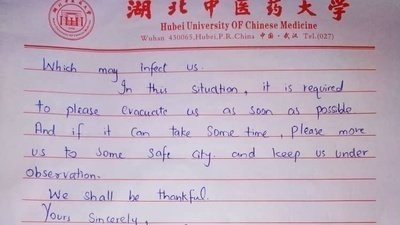 湖北中医药大学
Hubei University OF Chinese Medicine
Wuhan 430065, Hubei, P.R.China 中国·武汉 Tel.(027)
Which may infect us.
In this situation, it is required
to please evacuate us as soon as possible
And if it can take some time, please move
us to some safe city and keep us under
observation.
We shall be thankful.
Yours Sincerely,